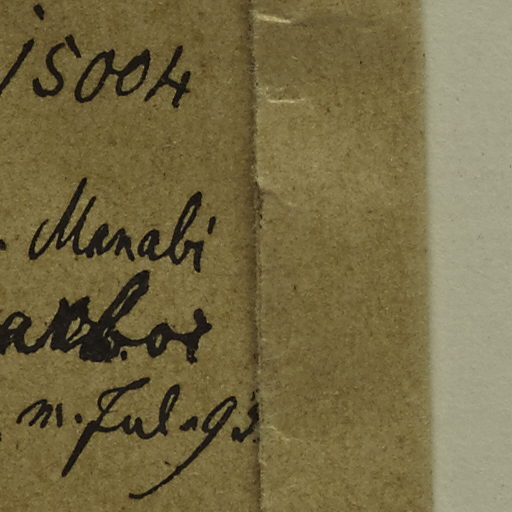 15004
. Manabi
m. Jul. 93